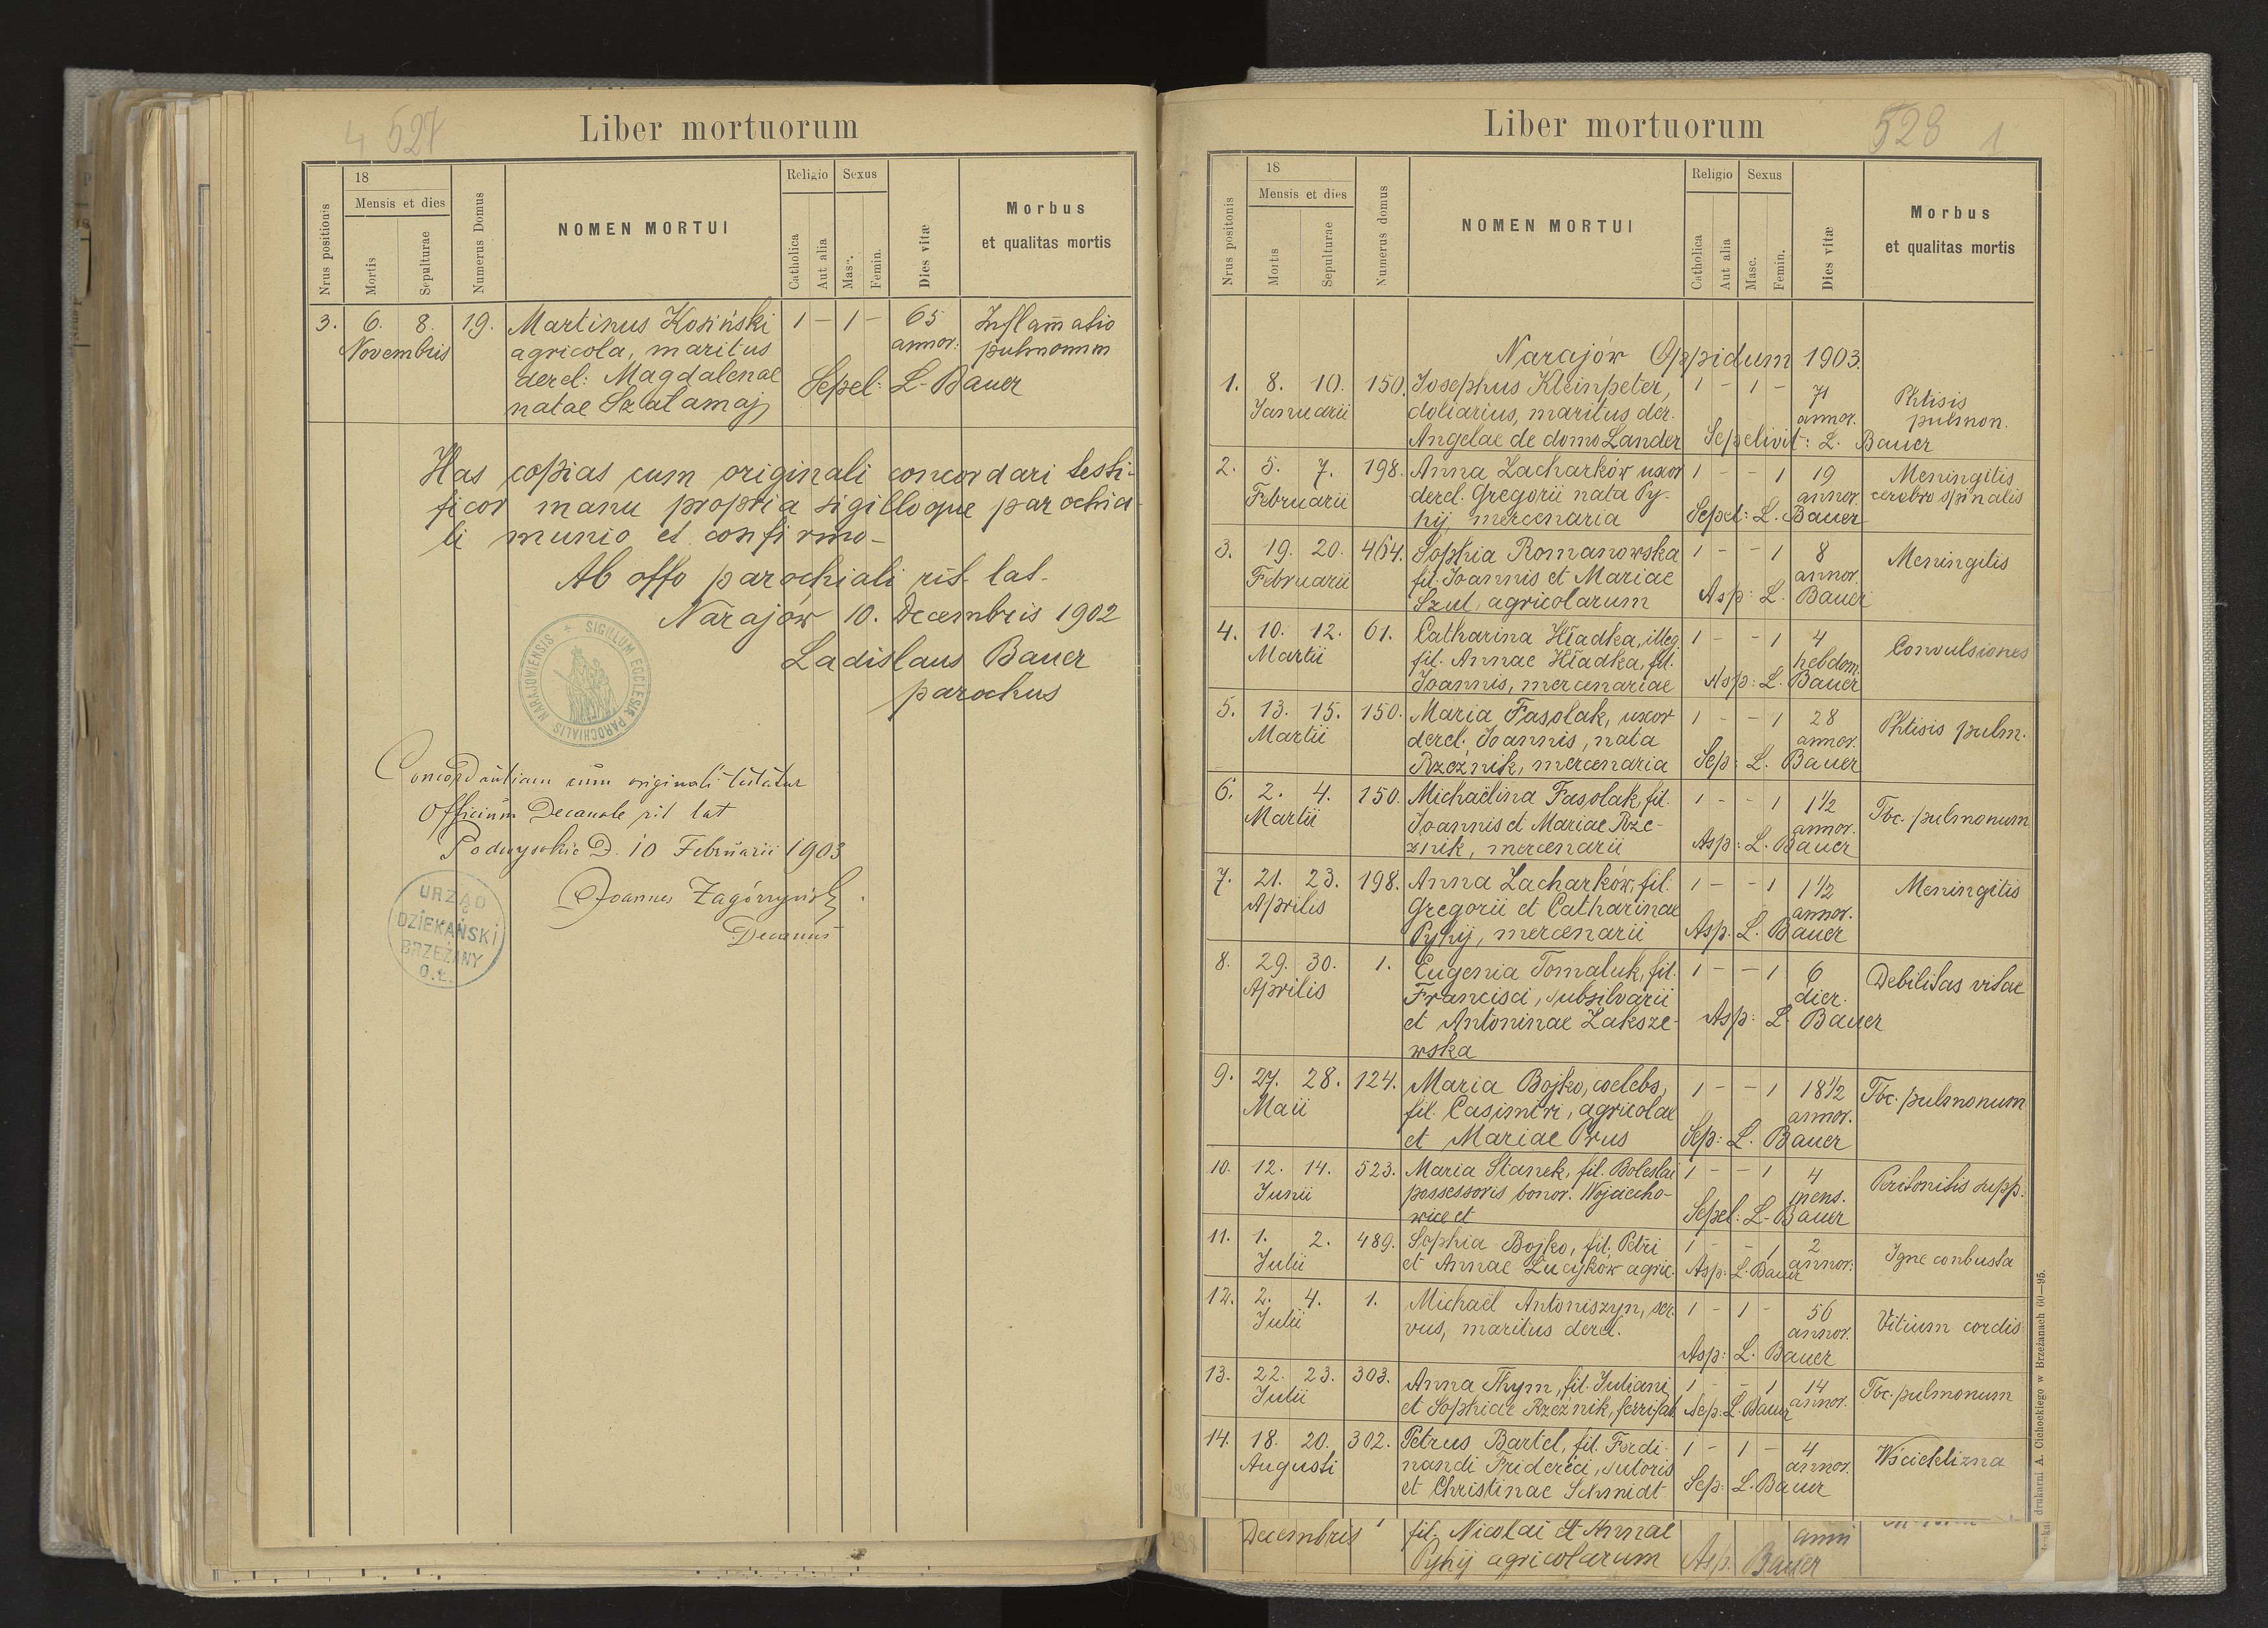 4 527
Liber mortuorum
Nrus positionis
18
Mensis et dies
Mortis
Sepulturae
Numerus Domus
NOMEN MORTUI
Religio
Catholica
Aut alia
Sexus
Masc.
Femin.
Dies vitæ
Morbus
et qualitas mortis
3. 6. 8. 19. Martinus Kosiński 1 – 1 – 65 Inflam̄atio
Novembris agricola, maritus annor: pulmonum
derel: Magdalenae Sepel: L. Bauer
natae Szałamaj
Has copias cum originali concordari testi-
ficor manu propria sigilloque parochia-
li munio et confirmo-
Ab offo parochiali rit. lat.
Narajów 10. Decembris 1902
Ladislaus Bauer
parochus
SIGILLUM ECCLESIÆ PAROCHIALIS NARAJOVIENSIS
Concordantiam cum originali testatur
Officium Decanale rit lat
Podwysokie D. 10 Februarii 1903
Joannes Zagórzyński
Decanus
URZĄD
DZIEKAŃSKI
BRZEŻANY
O.Ł.
528 1
Liber mortuorum
Nrus positonis
18
Mensis et dies
Mortis
Sepulturae
Numerus domus
NOMEN MORTUI
Religio
Catholica
Aut alia
Sexus
Masc.
Femin.
Dies vitæ
Morbus
et qualitas mortis
Narajów Oppidum 1903.
1. 8. 10. 150. Josephus Kleinpeter, 1 – 1 – 71 Phtisis
Januarii doliarius, maritus der. annor. pulmon.
Angelae de domo Lander Sepelivit: L. Bauer
2. 5. 7. 198. Anna Zacharków uxor 1 – – 1 19 Meningitis
Februarii derel. Gregorii nata Py- annor. cerebro spinalis
hij, mercenaria Sepel: L. Bauer
3. 19. 20. 464. Sophia Romanowska 1 – – 1 8 Meningitis
Februarii fil. Joannis et Mariae annor.
Szul, agricolarum Asp: L. Bauer
4. 10. 12. 61. Catharina Hładka, illeg. 1 – – 1 4 Convulsiones
Martii fil. Annae Hładka, fil. hebdom.
Joannis, mercenariae Asp: L. Bauer
5. 13. 15. 150. Maria Fasolak, uxor 1 – – 1 28 Phtisis pulm.
Martii derel. Joannis, nata annor.
Rzeźnik, mercenaria Sep: L. Bauer
6. 2. 4. 150. Michaëlina Fasolak, fil. 1 – – 1 1 1/2 Tbc. pulmonum
Martii Joannis et Mariae Rze- annor.
źnik, mercenarii Asp: L. Bauer
7. 21. 23. 198. Anna Zacharków, fil. 1 – – 1 1 1/2 Meningitis
Aprilis Gregorii et Catharinae annor.
Pyhij, mercenarii Asp. L. Bauer
8. 29. 30. 1. Eugenia Tomaluk, fil. 1 – – 1 6 Debilitas vitae
Aprilis Francisci, subsilvarii dier.
et Antoninae Zaksze- Asp: L. Bauer
wska
9. 27. 28. 124. Maria Bojko, coelebs, 1 – – 1 18 1/2 Tbc. pulmonum
Maii fil. Casimiri, agricolae annor.
et Mariae Prus Sep: L. Bauer
10. 12. 14. 523. Maria Stanek, fil. Boleslai 1 – – 1 4 Peritonitis supp.
Junii possessoris bonor. Wojciecho- mens.
wice et Sepel: L. Bauer
11. 1. 2. 489. Sophia Bojko, fil. Petri 1 – – 1 2 Igne conbusta
Julii et Annae Łucyków agric. Asp: L. Bauer annor:
12. 2. 4. 1. Michaël Antoniszyn, ser- 1 – 1 – 56 Vitium cordis
Julii vus, maritus derel. annor.
Asp: L. Bauer
13. 22. 23. 303. Anna Thym, fil. Juliani 1 – – 1 14 Tbc. pulmonum
Julii et Sophiae Rzeźnik, ferrifab. Sep: L. Bauer annor.
14. 18. 20. 302. Petrus Bartel, fil. Ferdi- 1 – 1 – 4 Wścieklizna
Augusti nandi Friderici, sutoris annor.
et Christinae Schmidt Sep: L. Bauer
Decembris fil. Nicolai et Annae anni
Pyhij agricolarum Asp. Bauer
drukarni A. Cichockiego w Brzeżanach 60—95.